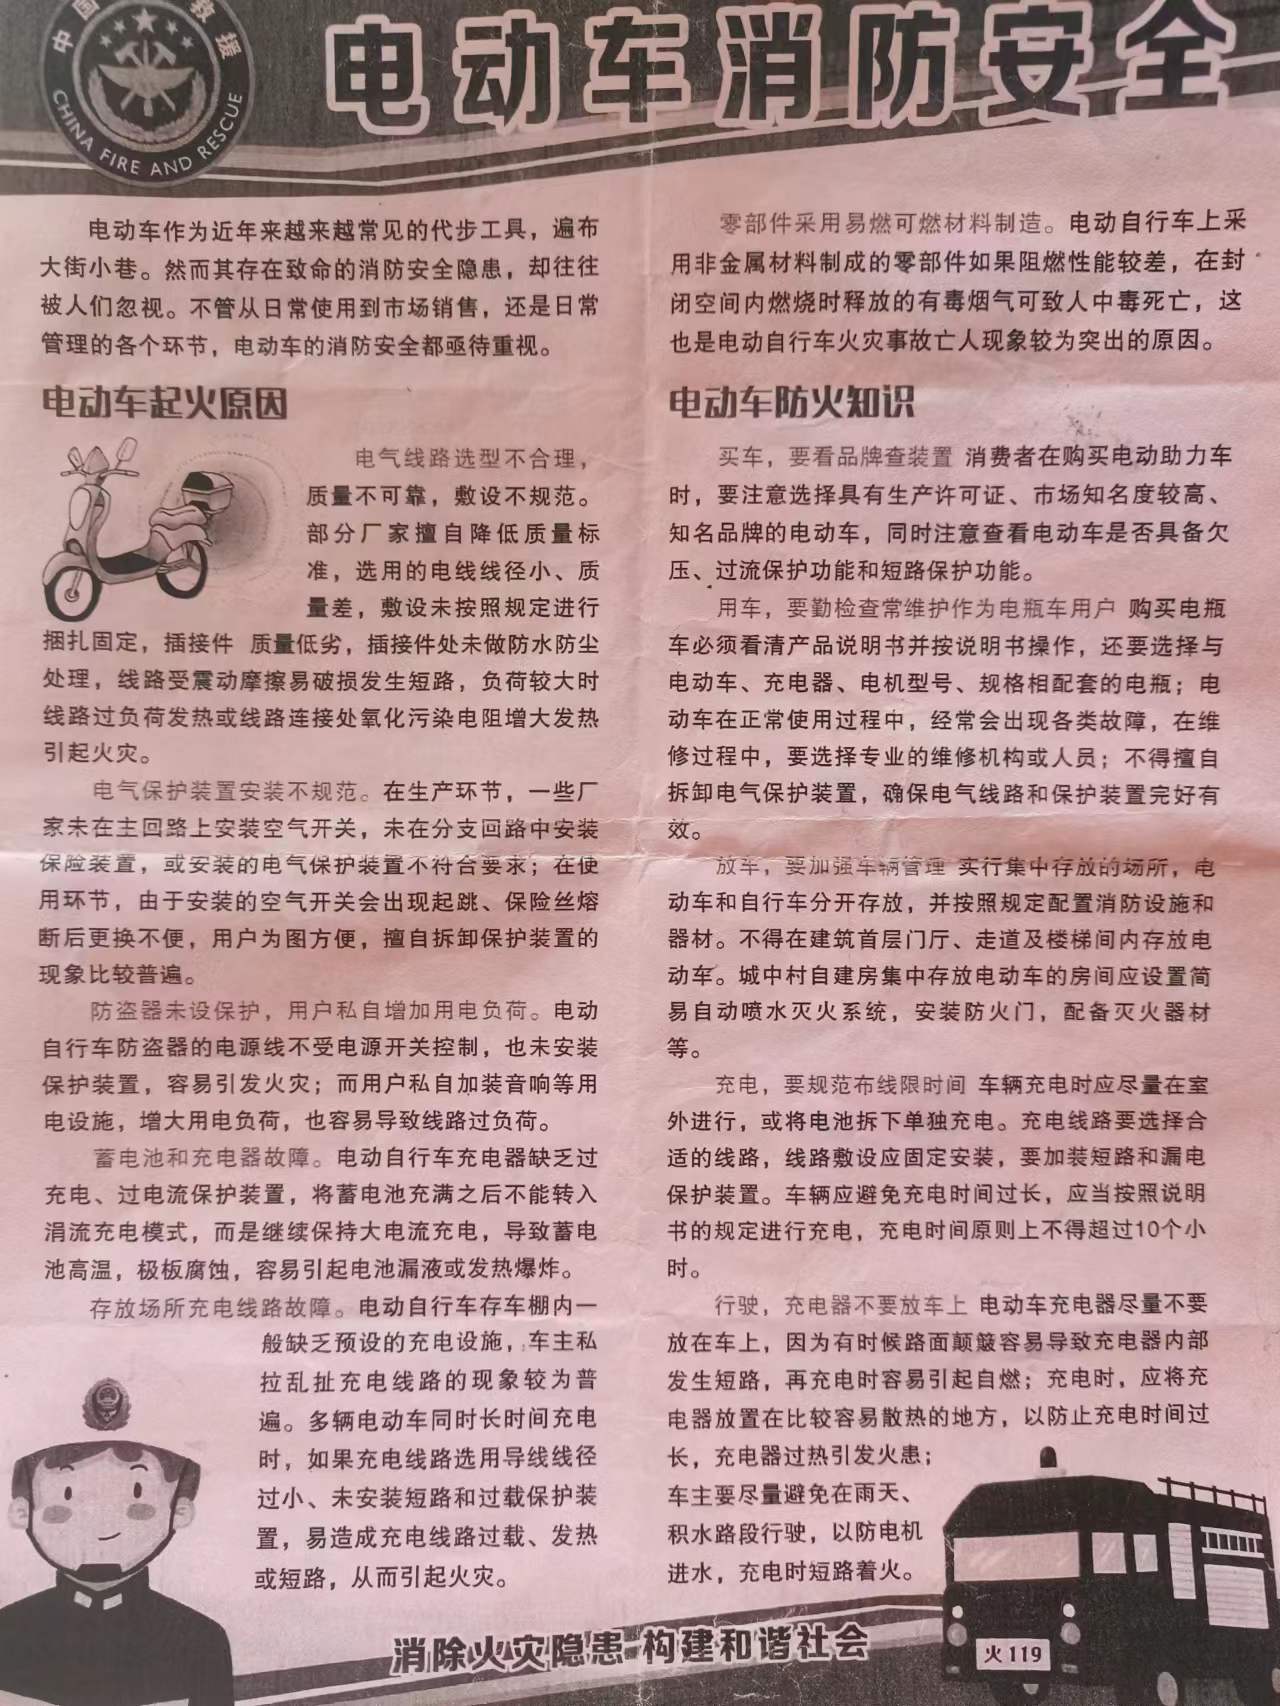 中国
救援
CHINA FIRE AND RESCUE
电动车消防安全
电动车作为近年来越来越常见的代步工具，遍布
大街小巷。然而其存在致命的消防安全隐患，却往往
被人们忽视。不管从日常使用到市场销售，还是日常
管理的各个环节，电动车的消防安全都亟待重视。
电动车起火原因
电气线路选型不合理，
质量不可靠，敷设不规范。
部分厂家擅自降低质量标
准，选用的电线线径小、质
量差，敷设未按照规定进行
捆扎固定，插接件 质量低劣，插接件处未做防水防尘
处理，线路受震动摩擦易破损发生短路，负荷较大时
线路过负荷发热或线路连接处氧化污染电阻增大发热
引起火灾。
电气保护装置安装不规范。在生产环节，一些厂
家未在主回路上安装空气开关，未在分支回路中安装
保险装置，或安装的电气保护装置不符合要求；在使
用环节，由于安装的空气开关会出现起跳、保险丝熔
断后更换不便，用户为图方便，擅自拆卸保护装置的
现象比较普遍。
防盗器未设保护，用户私自增加用电负荷。电动
自行车防盗器的电源线不受电源开关控制，也未安装
保护装置，容易引发火灾；而用户私自加装音响等用
电设施，增大用电负荷，也容易导致线路过负荷。
蓄电池和充电器故障。电动自行车充电器缺乏过
充电、过电流保护装置，将蓄电池充满之后不能转入
涓流充电模式，而是继续保持大电流充电，导致蓄电
池高温，极板腐蚀，容易引起电池漏液或发热爆炸。
存放场所充电线路故障。电动自行车存车棚内一
般缺乏预设的充电设施，车主私
拉乱扯充电线路的现象较为普
遍。多辆电动车同时长时间充电
时，如果充电线路选用导线线径
过小、未安装短路和过载保护装
置，易造成充电线路过载、发热
或短路，从而引起火灾。
零部件采用易燃可燃材料制造。电动自行车上采
用非金属材料制成的零部件如果阻燃性能较差，在封
闭空间内燃烧时释放的有毒烟气可致人中毒死亡，这
也是电动自行车火灾事故亡人现象较为突出的原因。
电动车防火知识
买车，要看品牌查装置 消费者在购买电动助力车
时，要注意选择具有生产许可证、市场知名度较高、
知名品牌的电动车，同时注意查看电动车是否具备欠
压、过流保护功能和短路保护功能。
用车，要勤检查常维护作为电瓶车用户 购买电瓶
车必须看清产品说明书并按说明书操作，还要选择与
电动车、充电器、电机型号、规格相配套的电瓶；电
动车在正常使用过程中，经常会出现各类故障，在维
修过程中，要选择专业的维修机构或人员；不得擅自
拆卸电气保护装置，确保电气线路和保护装置完好有
效。
放车，要加强车辆管理 实行集中存放的场所，电
动车和自行车分开存放，并按照规定配置消防设施和
器材。不得在建筑首层门厅、走道及楼梯间内存放电
动车。城中村自建房集中存放电动车的房间应设置简
易自动喷水灭火系统，安装防火门，配备灭火器材
等。
充电，要规范布线限时间 车辆充电时应尽量在室
外进行，或将电池拆下单独充电。充电线路要选择合
适的线路，线路敷设应固定安装，要加装短路和漏电
保护装置。车辆应避免充电时间过长，应当按照说明
书的规定进行充电，充电时间原则上不得超过10个小
时。
行驶，充电器不要放车上 电动车充电器尽量不要
放在车上，因为有时候路面颠簸容易导致充电器内部
发生短路，再充电时容易引起自燃；充电时，应将充
电器放置在比较容易散热的地方，以防止充电时间过
长，充电器过热引发火患；
车主要尽量避免在雨天、
积水路段行驶，以防电机
进水，充电时短路着火。
火119
消除火灾隐患 构建和谐社会